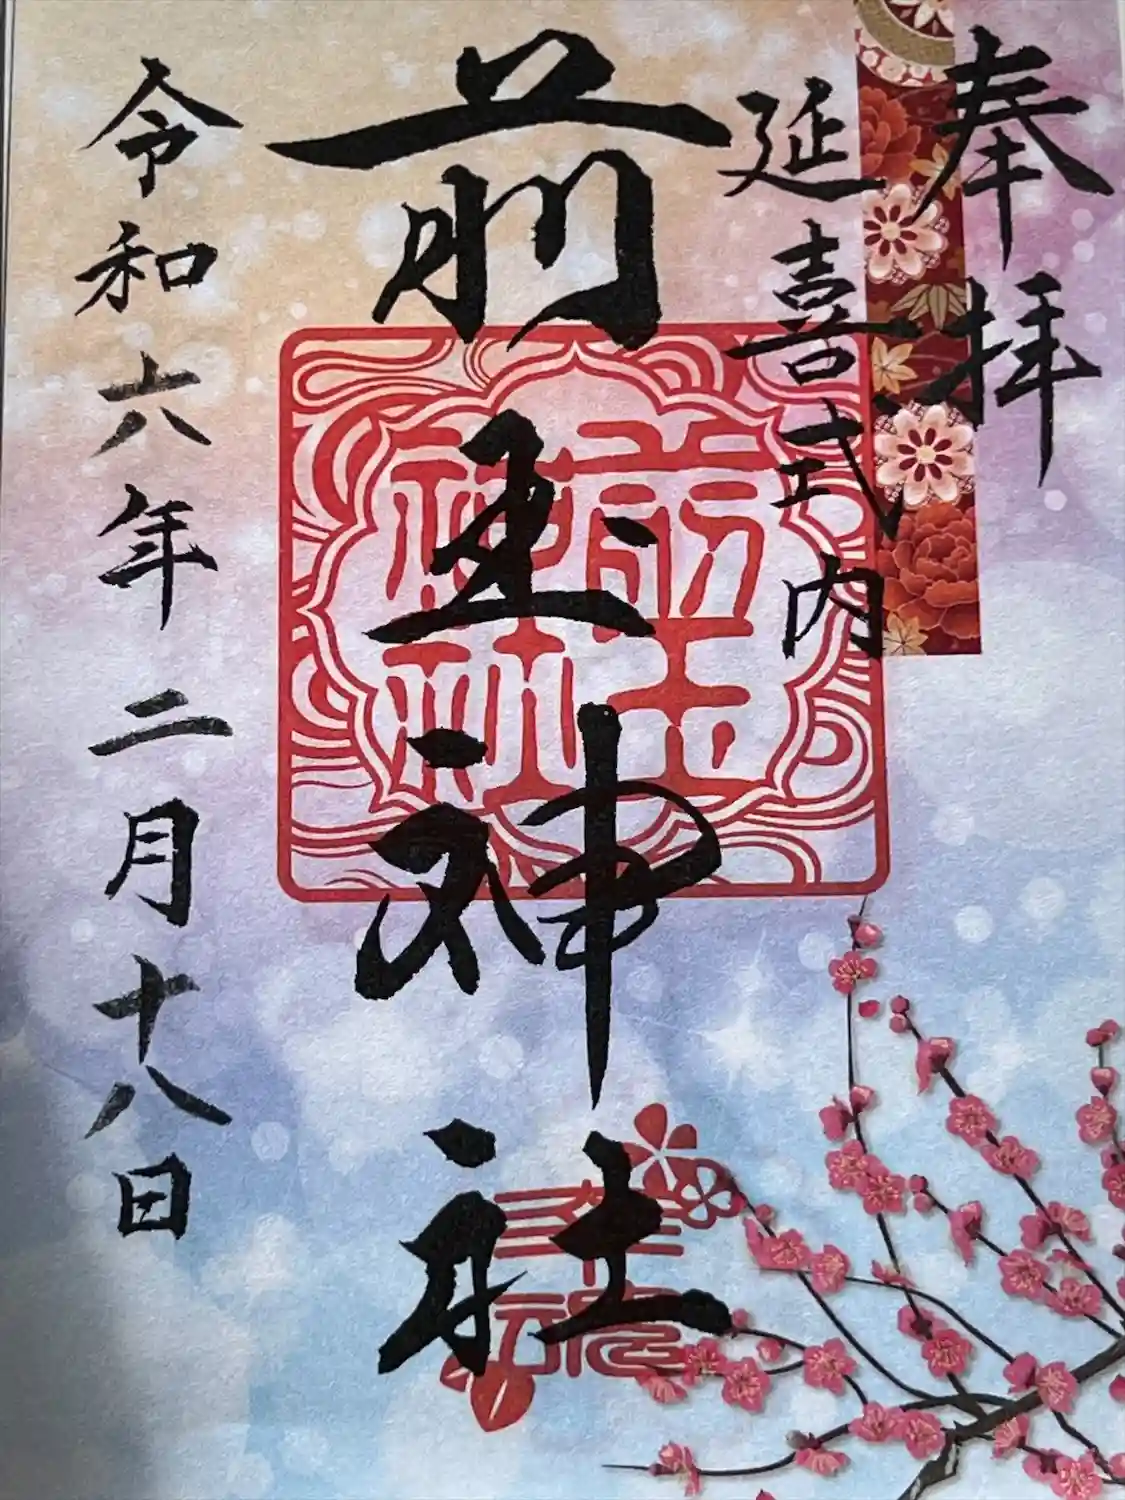 奉拝
延喜式内
前玉神社
前玉神社
令和六年二月十八日